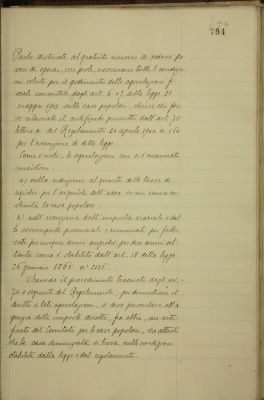 794
Paolo destinate al gratuito ricovero di vedove po-
vere di operai, con prole, concorrano tutte le condizio-
ni volute per il godimento delle agevolazioni fi-
scali consentite dagli art. 6 e 7 della legge 31
maggio 1903 sulle case popolari, chiese che fos-
se rilasciato il certificato prescritto dall'art. 75
lettera a del Regolamento 24 aprile 1904 n. 164
per l'esecuzione di detta legge.
Come è noto, le agevolazioni cui si è accennato
consistono:
a) nella riduzione al quarto delle tasse di
registro per l'acquisto dell'area su cui venne co-
struita la casa popolare.
b) nell'esenzione dall'imposta erariale e dal-
le sovrimposte provinciali e comunali pei fabbri-
cati per cinque anni anziché per due anni sol-
tanto come è stabilito dall'art. 18 della legge
26 gennaio 1865 n° 2136.
Secondo il procedimento tracciato dagli art.
74 e seguenti del Regolamento, per dimostrare il
diritto a tali agevolazioni, si deve presentare all'a-
genzia delle imposte dirette, fra altro, un certi-
ficato del Comitato per le case popolari, che attesti
che la casa denunziata si trova nelle condizioni
stabilite dalla legge e dal regolamento.